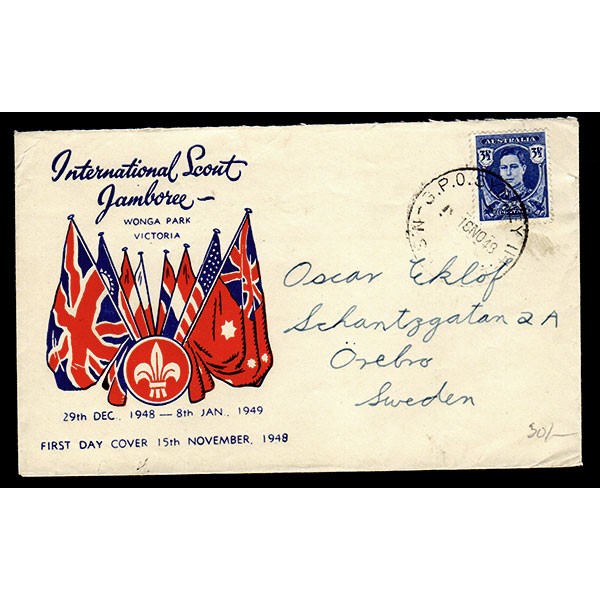 International Scout
Jamboree –
WONGA PARK
VICTORIA
29th DEC., 1948 — 8th JAN., 1949
FIRST DAY COVER 15th NOVEMBER, 1948
AUSTRALIA
3½D
3½D
G.P.O. SYDNEY
15NO48
Oscar Eklöf
Schantzgatan 2 A
Örebro
Sweden
30/-